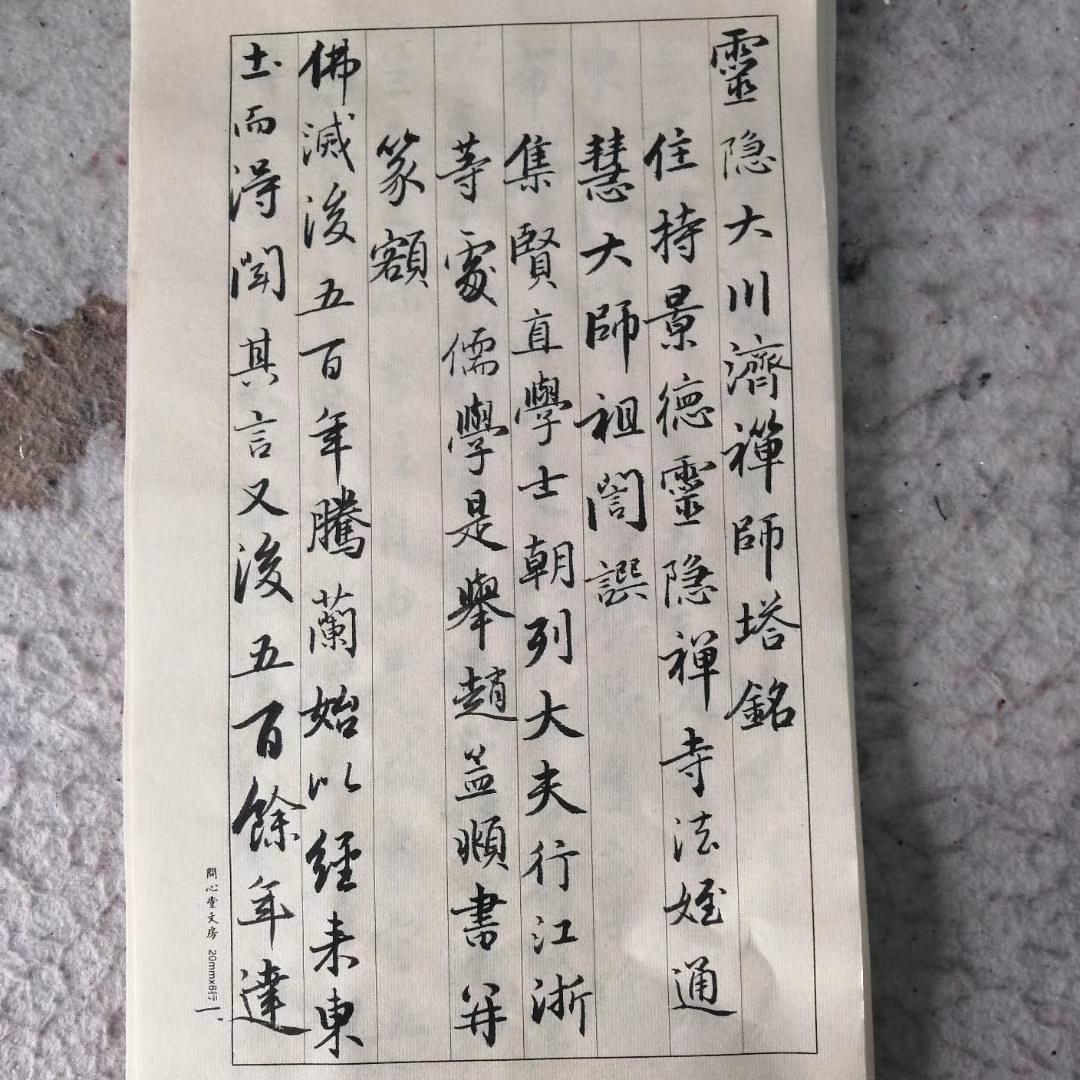 靈隐大川濟禪師塔銘
住持景德靈隐禅寺法姪通
慧大師祖誾譔
集賢直學士朝列大夫行江浙
等處儒學提舉趙孟頫書并
篆額
佛滅後五百年騰蘭始以經来東
土而得聞其言又後五百餘年達
問心堂文房 20mmx8行